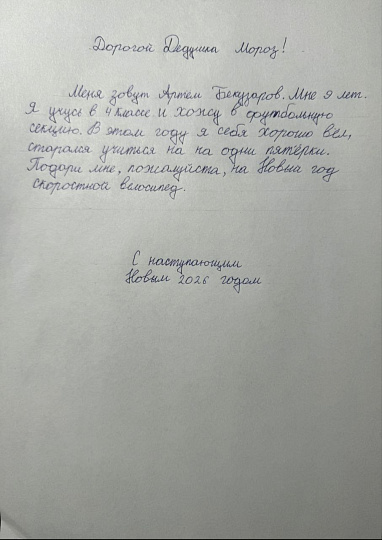 Дорогой Дедушка Мороз!
Меня зовут Артём Бекузаров. Мне 9 лет.
Я учусь в 4 классе и хожу в футбольную
секцию. В этом году я себя хорошо вел,
старался учиться на на одни пятёрки.
Подари мне, пожалуйста, на Новый год
скоростной велосипед.
С наступающим
Новым 2026 годом